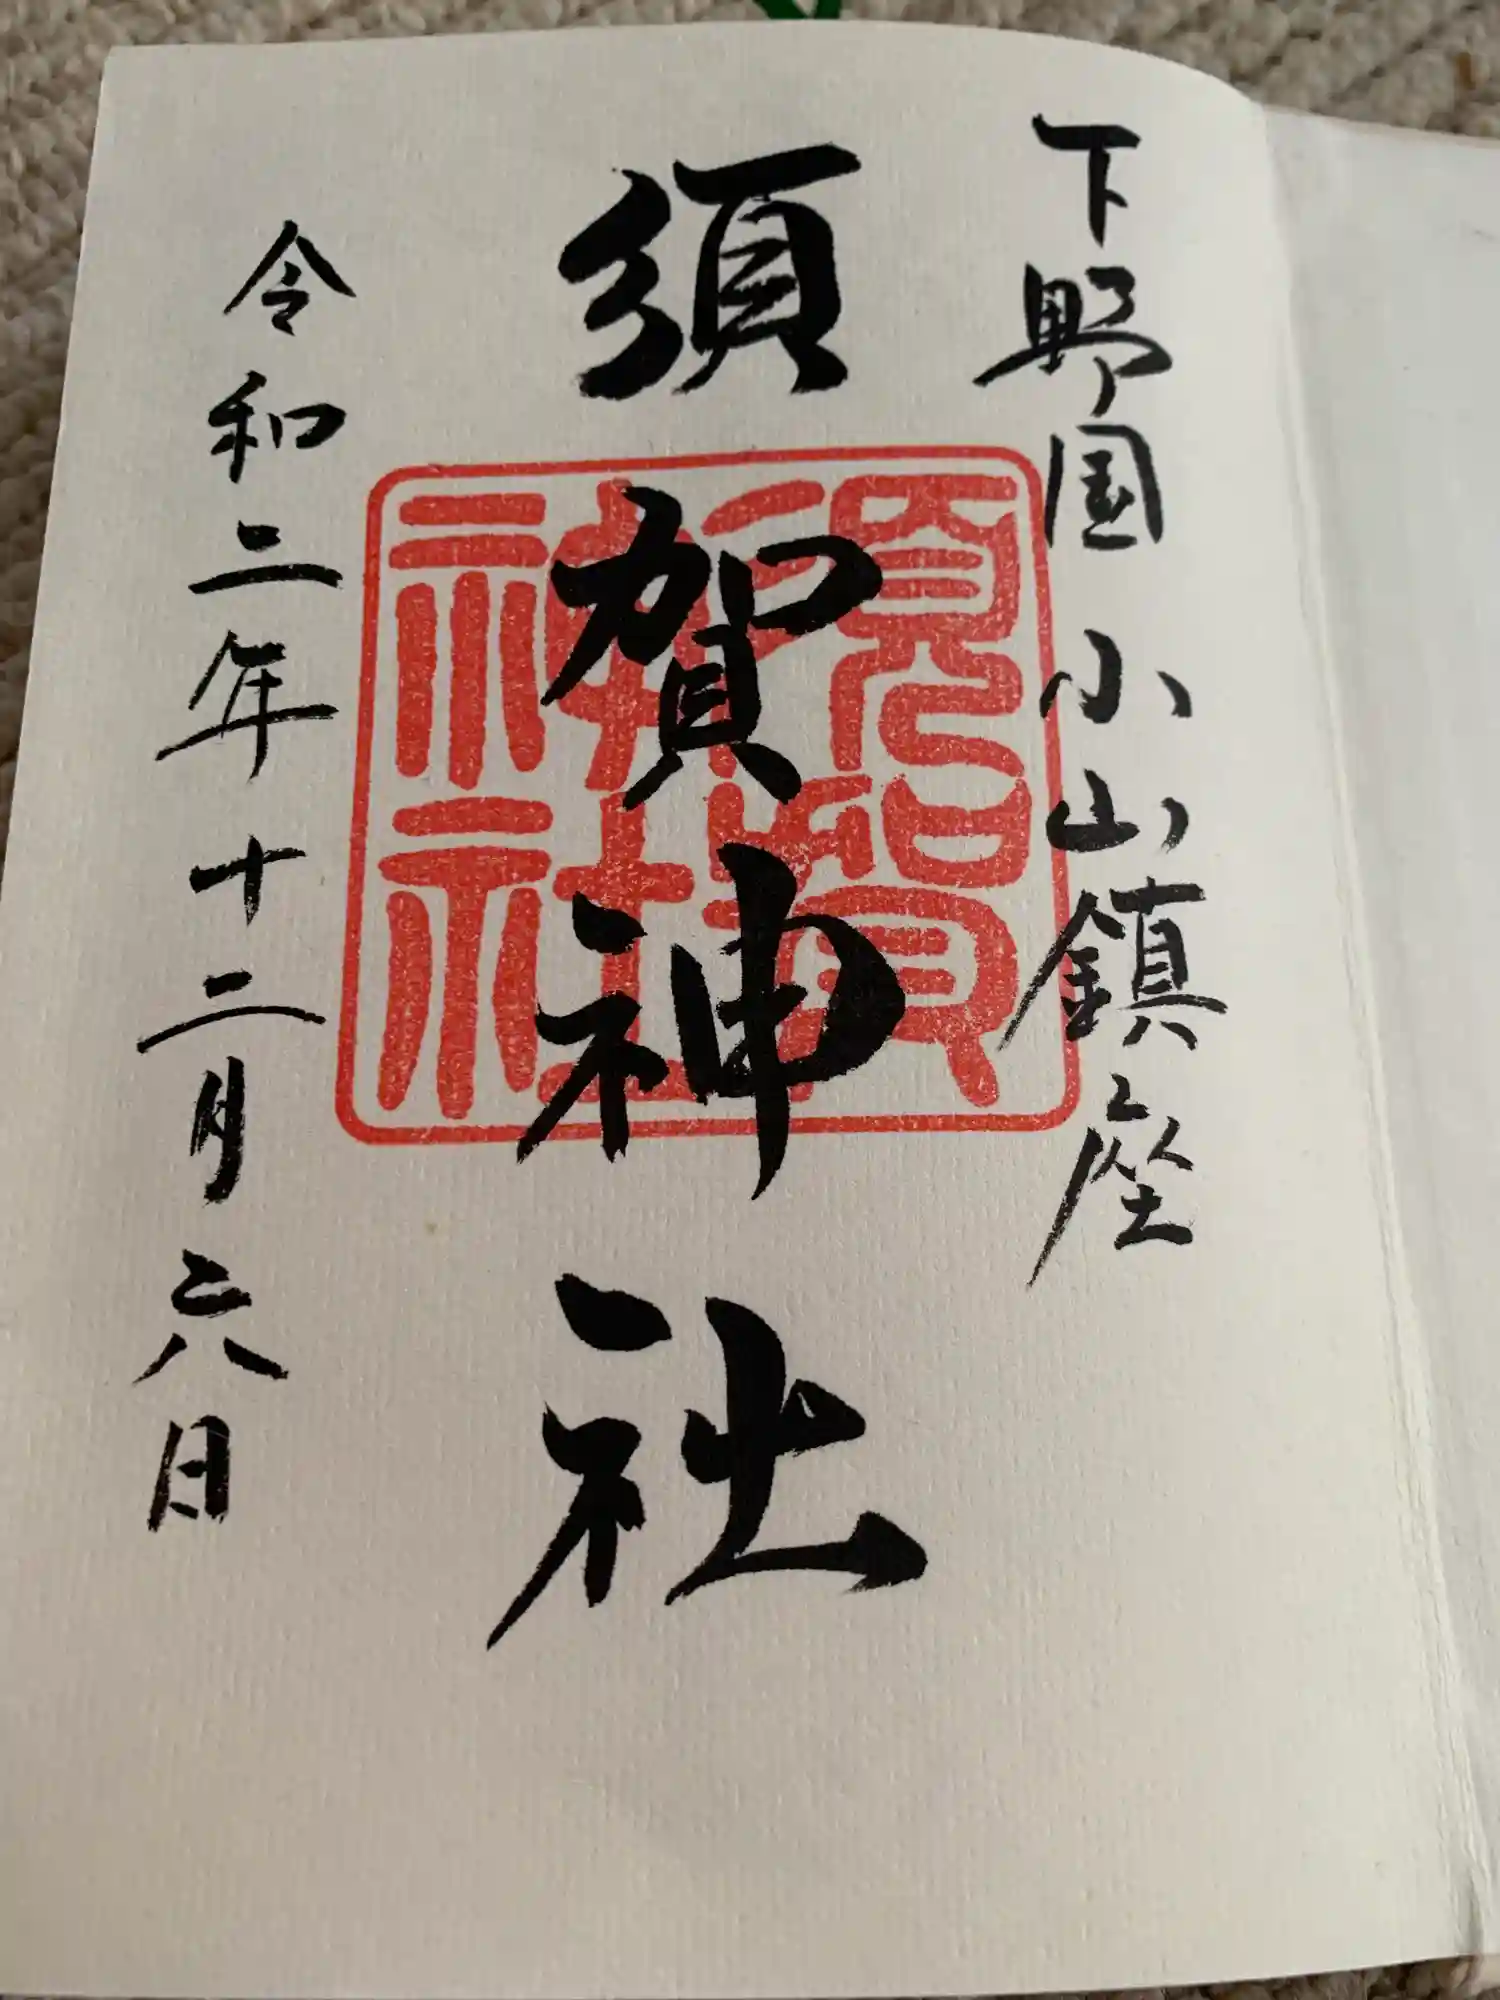 下野国 小山鎮座
須賀神社
須賀神社
令和二年十二月六日